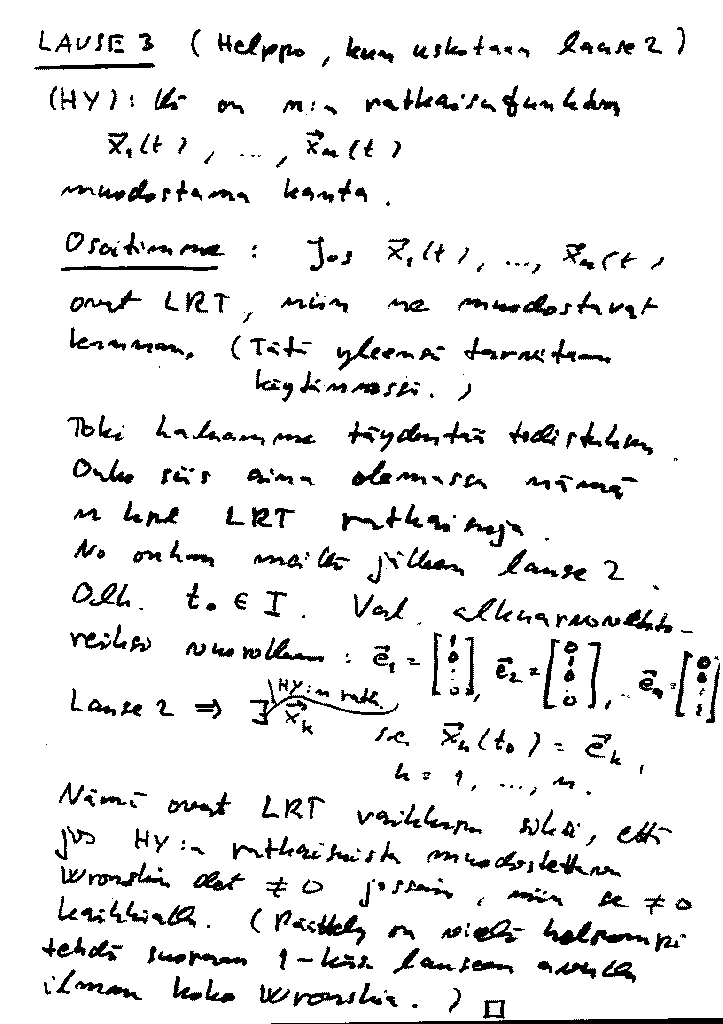 LAUSE 3 (Helppo, kun uskotaan lause 2)
(HY):llä on n:n ratkaisufunktion
x⃗₁(t), ..., x⃗ₙ(t)
muodostama kanta.
Osoitimme : Jos x⃗₁(t), ..., x⃗ₙ(t)
ovat LRT, niin ne muodostavat
kannan. (Tätä yleensä tarvitaan
käytännössä.)
Toki haluamme täydentää todistuksen
Onko siis aina olemassa nämä
n kpl LRT ratkaisuja.
No onhan meillä jälleen lause 2.
Olk. t₀ ∈ I. Val. alkuarvovekto-
reiksi vuorollaan : e⃗₁ = [1 0 ⋮ 0], e⃗₂ = [0 1 ⋮ 0], ... e⃗ₙ = [0 0 ⋮ 1]
Lause 2 ⇒ ∃ HY:n ratk. x⃗ₖ
s.e. x⃗ₖ(t₀) = e⃗ₖ,
k = 1, ..., n.
Nämä ovat LRT vaikkapa siksi, että
jos HY:n ratkaisuista muodostettu
Wronskin det ≠ 0 jossain, niin se ≠ 0
kaikkialla. (Päättely on vielä helpompi
tehdä suoraan 1-käs. lauseen avulla
ilman koko Wronskia.) □